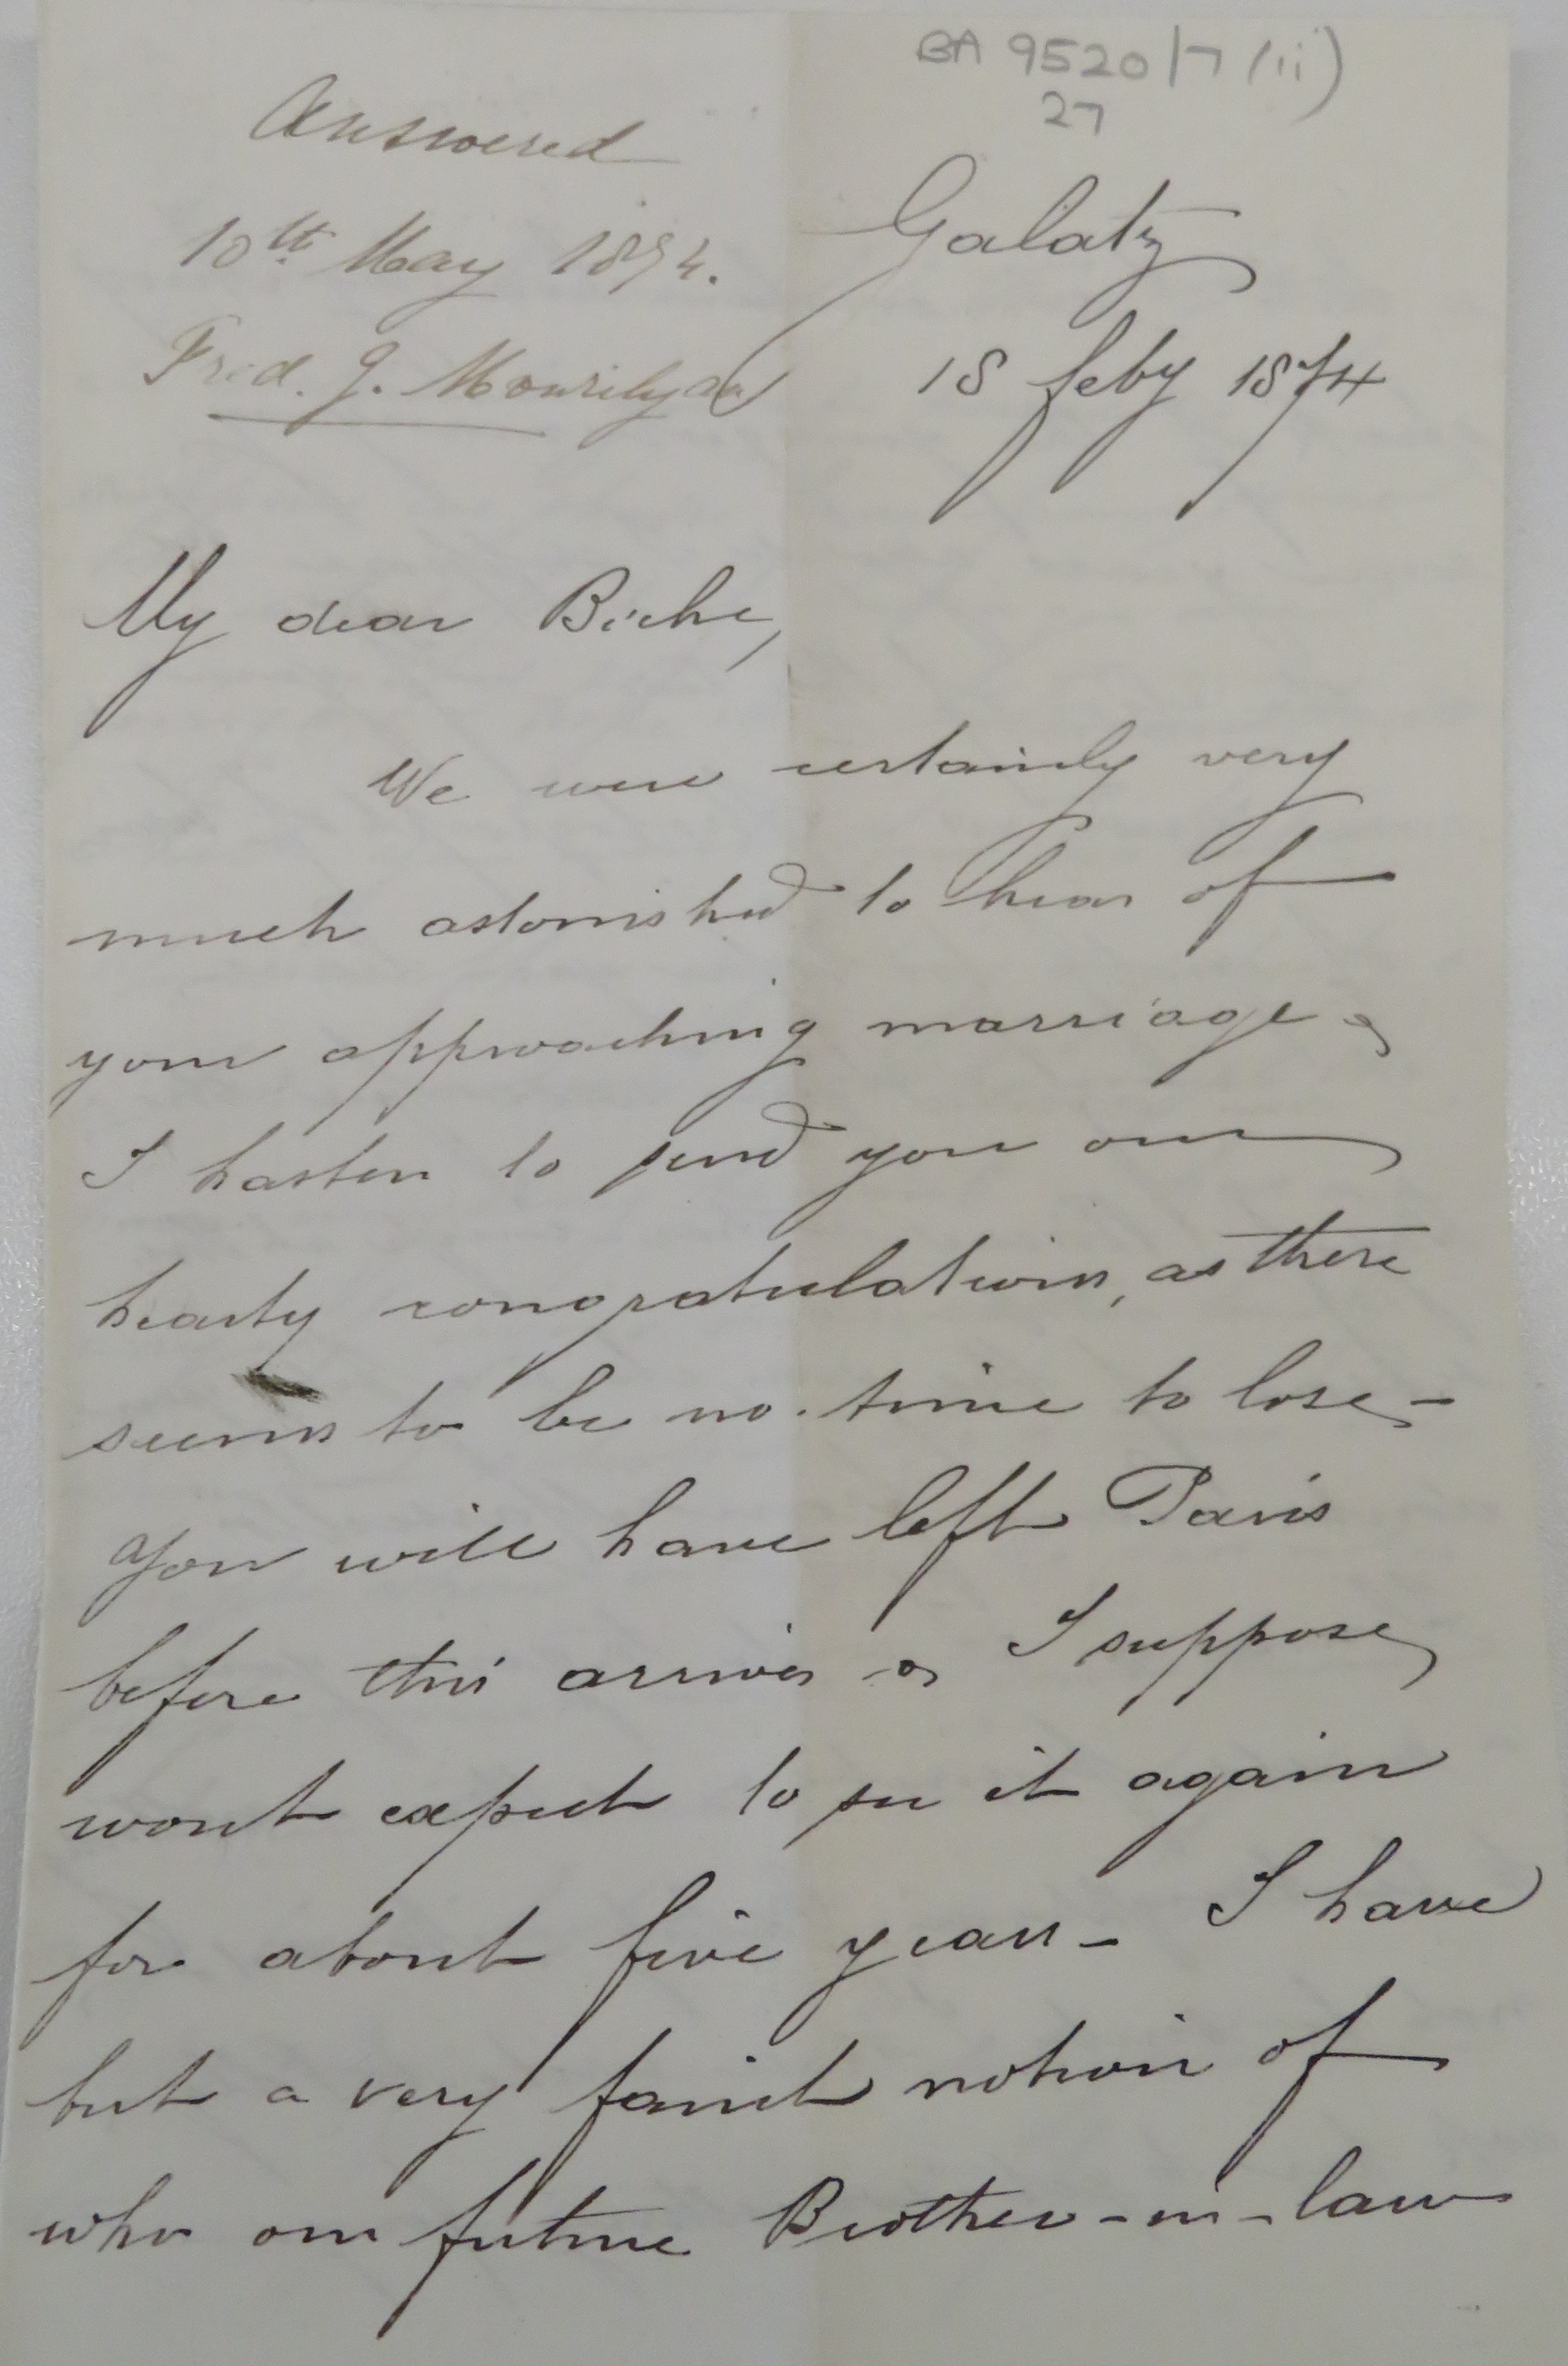 BA 9520/7 (ii)
27
Answered
10th May 1874.
Fred. J. Mourilyan
Galatz
18 feby 1874
My dear Biche,
We were certainly very
much astonished to hear of
your approaching marriage &
I hasten to send you our
hearty congratulations, as there
seems to be no time to lose -
You will have left Paris
before this arrives & I suppose
wont expect to see it again
for about five years - I have
but a very faint notion of
who our future Brother-in-law